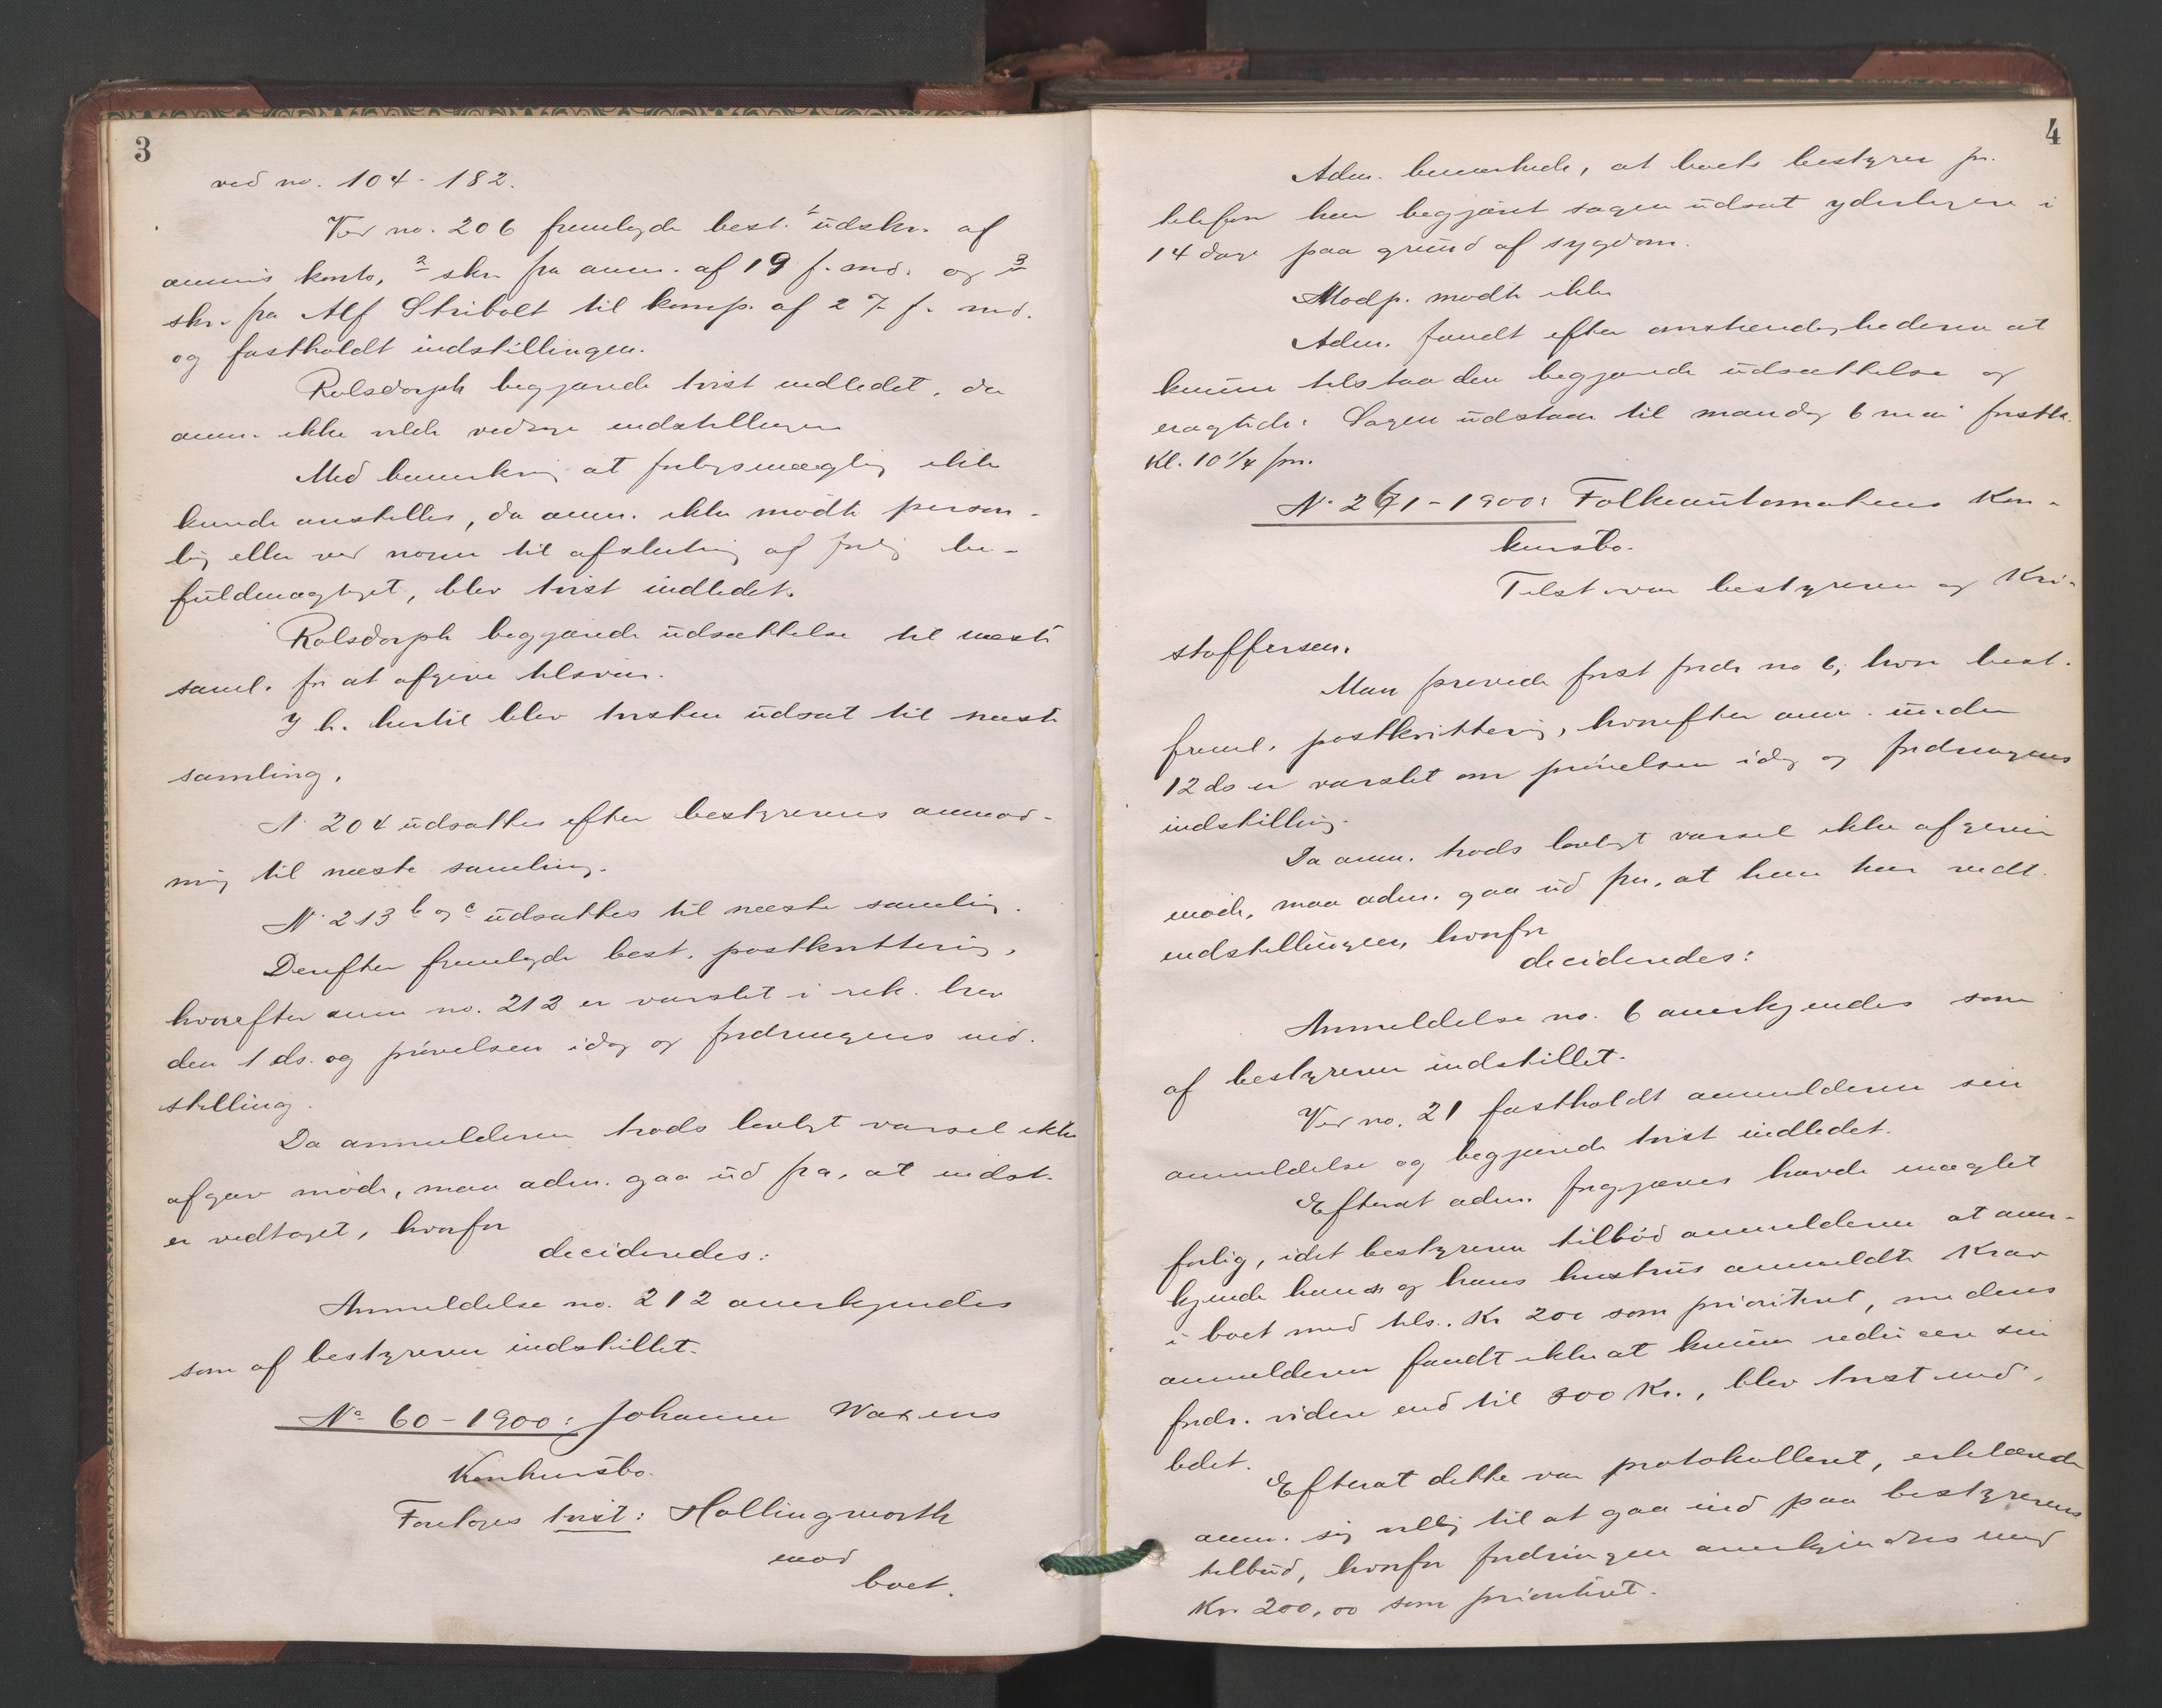 3
ved no. 104-182.
Ved no. 206 fremlagde best. 1 udskr. af
anm's konto, 2 skr. fra anm. af 19 f. md. og 3
skr. fra Alf Stribolt til komp. af 27 f. md.
og fastholdt indstillingen.
Rolsdorph begjærede tvist indledet, da
anm. ikke vilde vedtage indstillingen
Med bemerkning at forligsmægling ikke
kunde anstilles, da anm. ikke mødte person-
lig eller ved noen til afslutning af forlig be-
fuldmægtiget, blev tvist indledet.
Rolsdorph begjærede udsættelse til næste
saml. for at afgive tilsvar.
I h. hertil blev tvisten udsat til næste
samling.
N. 204 udsattes efter bestyrerens anmod-
ning til næste samling.
N. 213 b og c udsattes til næste samling.
Derefter fremlagde best. postkvittering,
hvorefter anm no. 212 er varslet i rek. brev
den 1 ds. og prøvelsen idag og fordringens ind-
stilling.
Da anmelderen trods lovligt varsel ikke
afgav møde, maa adm. gaa ud fra, at indst.
er vedtaget, hvorfor
decideredes:
Anmeldelse no. 212 anerkjendes
som af bestyreren indstillet.
No 60-1900: Johanne Waxens
Konkursbo.
Foretoges tvist: Hollingworth
mod
boet.
4
Adm. bemærkede, at boets bestyrer pr.
telefon har begjært sagen udsat yderligere i
14 dage paa grund af sygdom.
Modp. mødte ikke
Adm. fandt efter omstændighederne at
kunne tilstaa den begjærede udsættelse og
eragtede: Sagen udstaar til mandag 6 mai førstk.
Kl. 10 1/4 fm.
N. 261-1900: Folkeautomatens Kon-
kursbo.
Tilst. var bestyreren og Kri-
stoffersen.
Man prøvede først fordr. no 6, hvor best.
freml. postkvittering, hvorefter anm. under
12 ds er varslet om prøvelsen idag og fordringens
indstilling.
Da anm. trods lovligt varsel ikke afgiver
møde, maa adm. gaa ud fra, at han har vedt.
indstillingen, hvorfor
decideredes:
Anmeldelse no. 6 anerkjendes som
af bestyreren indstillet.
Ved no. 21 fastholdt anmelderen sin
anmeldelse og begjærede tvist indledet.
Efterat adm. forgjæves havde mæglet
forlig, idet bestyreren tilbød anmelderen at aner-
kjende hans og hans hustrus anmeldte Krav
i boet med tils. Kr 200 som prioritert, medens
anmelderen fandt ikke at kunne reducere sin
fordr. videre end til 300 Kr., blev tvist ind-
ledet.
Efterat dette var protokolleret, erklærede
anm. sig villig til at gaa ind paa bestyrerens
tilbud, hvorfor fordringen anerkjendtes med
Kr. 200,00 som prioritert.